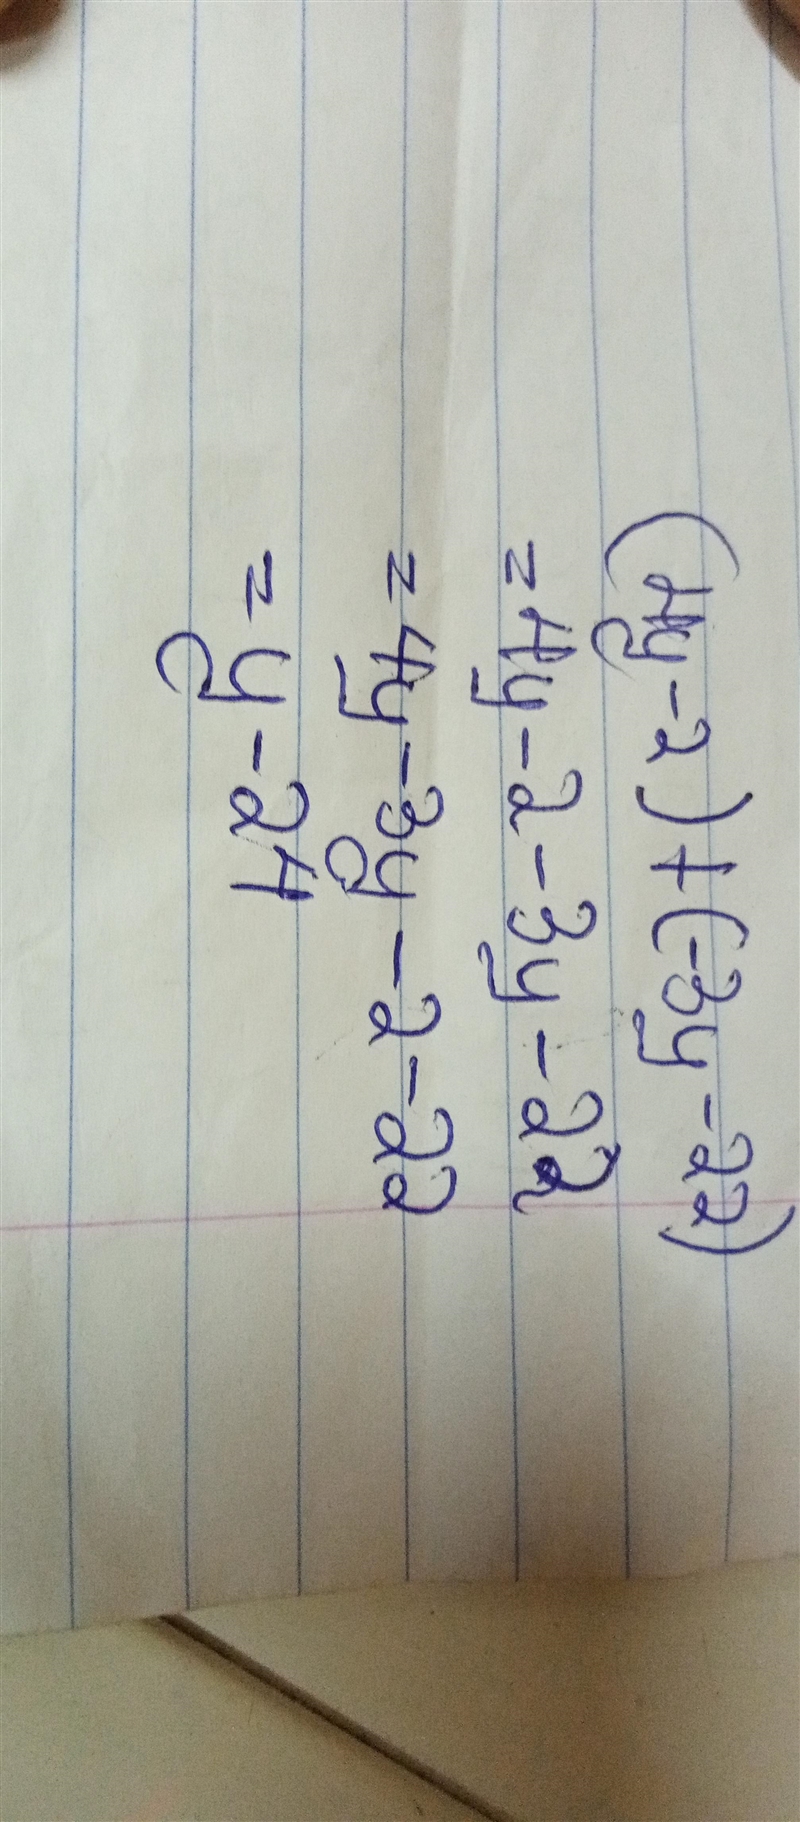 (4y-2)+(-3y-22)
=4y-2-3y-22
=4y-3y-2-22
=y-24